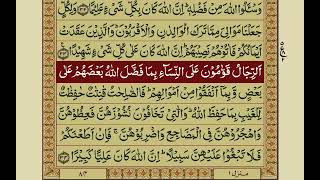 وَسْـَٔلُوا اللّٰهَ مِنْ فَضْلِهٖ ؕ اِنَّ اللّٰهَ كَانَ بِكُلِّ شَیْءٍ عَلِیْمًا ﴿۳۲﴾ وَلِكُلٍّ
جَعَلْنَا مَوَالِیَ مِمَّا تَرَكَ الْوَالِدٰنِ وَالْاَقْرَبُوْنَ ؕ وَالَّذِیْنَ عَقَدَتْ
اَیْمَانُكُمْ فَاٰتُوْهُمْ نَصِیْبَهُمْ ؕ اِنَّ اللّٰهَ كَانَ عَلٰی كُلِّ شَیْءٍ شَهِیْدًا ﴿۳۳﴾
اَلرِّجَالُ قَوّٰمُوْنَ عَلَی النِّسَآءِ بِمَا فَضَّلَ اللّٰهُ بَعْضَهُمْ عَلٰی
بَعْضٍ وَّبِمَاۤ اَنْفَقُوْا مِنْ اَمْوَالِهِمْ ؕ فَالصّٰلِحٰتُ قٰنِتٰتٌ حٰفِظٰتٌ
لِّلْغَیْبِ بِمَا حَفِظَ اللّٰهُ ؕ وَالّٰتِیْ تَخَافُوْنَ نُشُوْزَهُنَّ فَعِظُوْهُنَّ
وَاهْجُرُوْهُنَّ فِی الْمَضَاجِعِ وَاضْرِبُوْهُنَّ ۚ فَاِنْ اَطَعْنَكُمْ
فَلَا تَبْغُوْا عَلَیْهِنَّ سَبِیْلًا ؕ اِنَّ اللّٰهَ كَانَ عَلِیًّا كَبِیْرًا ﴿۳۴﴾
منزل ۱
۸۴